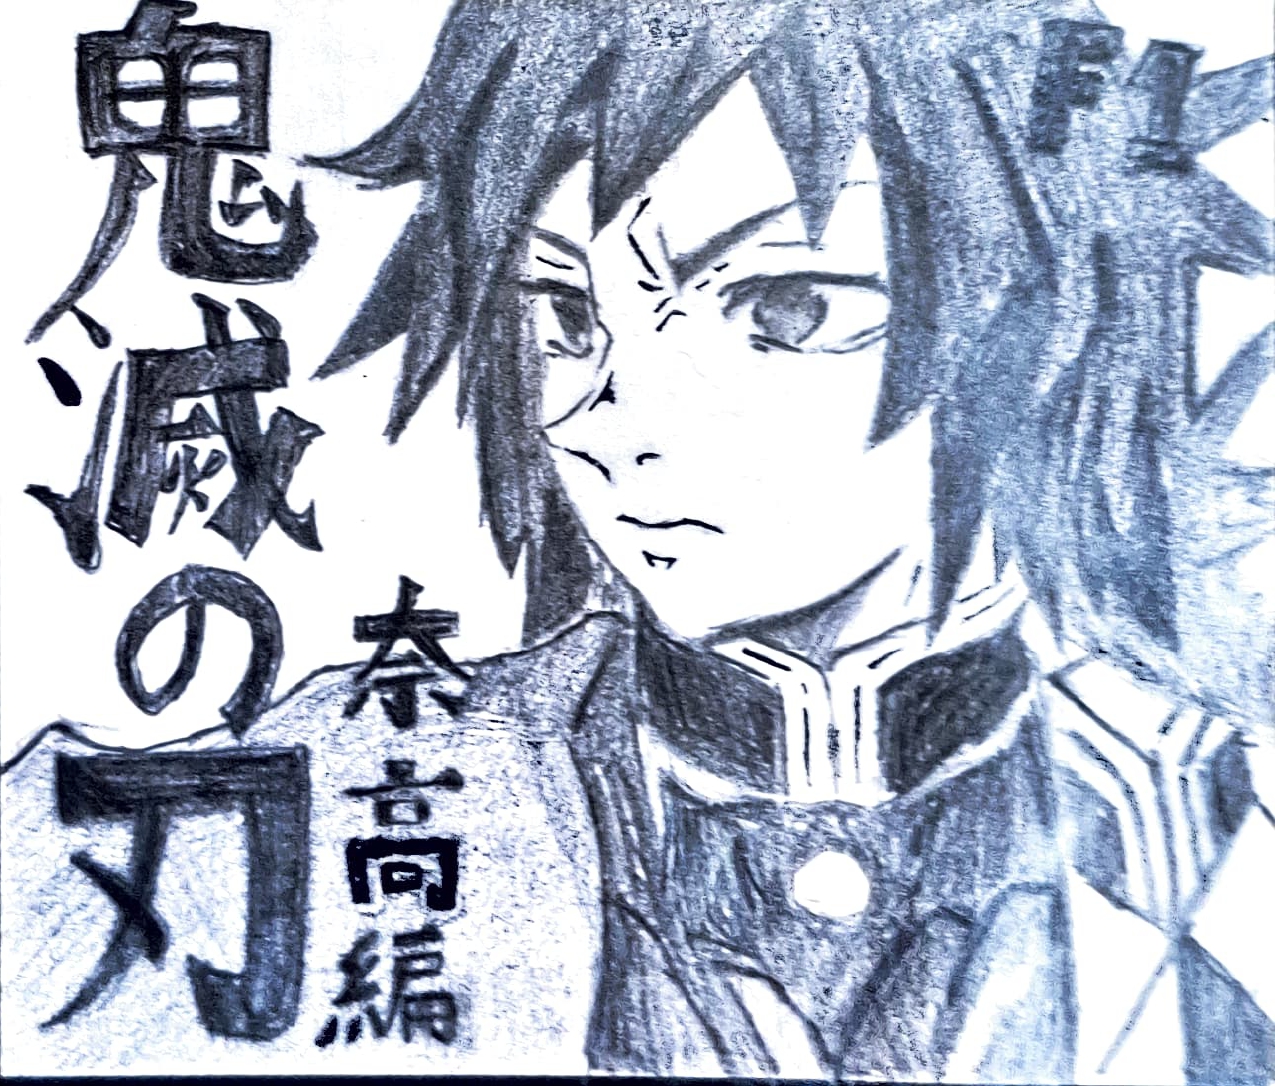 鬼滅の刃
奈高編
F1